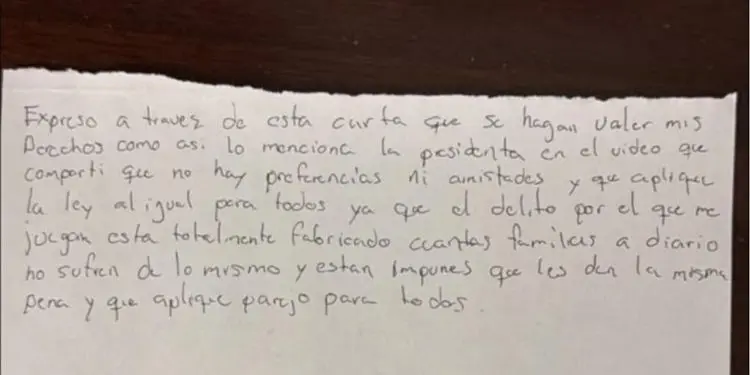 Expreso a travez de esta carta que se hagan valer mis
Derechos como asi lo menciona la presidenta en el video que
comparti que no hay preferencias ni amistades y que aplique
la ley al igual para todos ya que el delito por el que me
juegan esta totalmente fabricado cuantas familias a diario
no sufren de lo mismo y estan impunes que les den la misma
pena y que aplique parejo para todos.